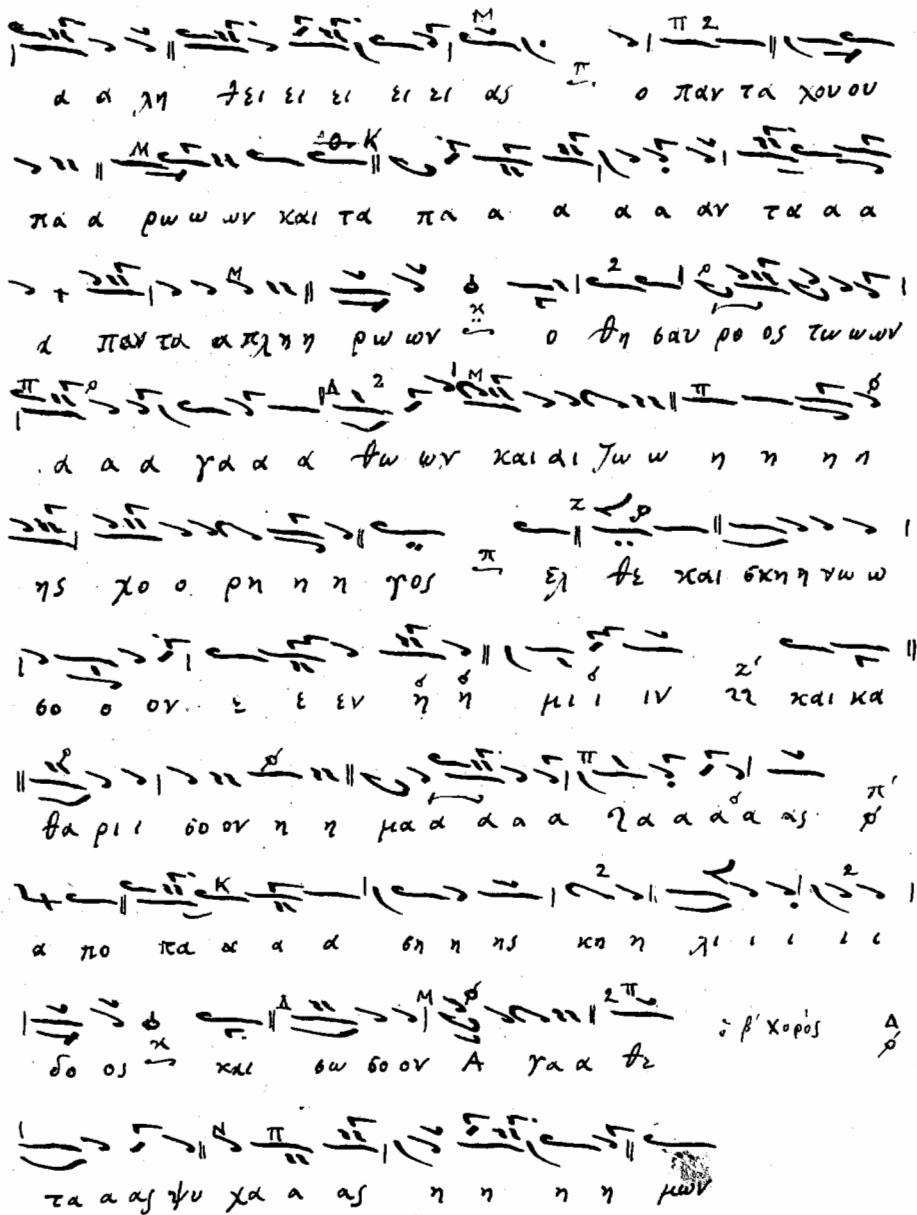 α α λη θει ει ει ει ει ας ο παν τα χου ου
πα α ρω ω ων και τα πα α α α α αν τα α α
α παν τα α πλη η ρω ων ο θη σαυ ρο ος τω ω ων
α α α γα α α θω ων και αι ζω ω η η η η
ης χο ο ρη η η γος ελ θε και σκη η νω ω
σο ο ον ε ε εν η η μι ι ιν και κα
θα ρι ι σο ον η η μα α α α α α α α α ας
α πο πα α α α ση η ης κη η λι ι ι ι ι
δο ος και σω σο ον Α γα α θε ὁ β' χορός
τα α ας ψυ χα α ας η η η η μων